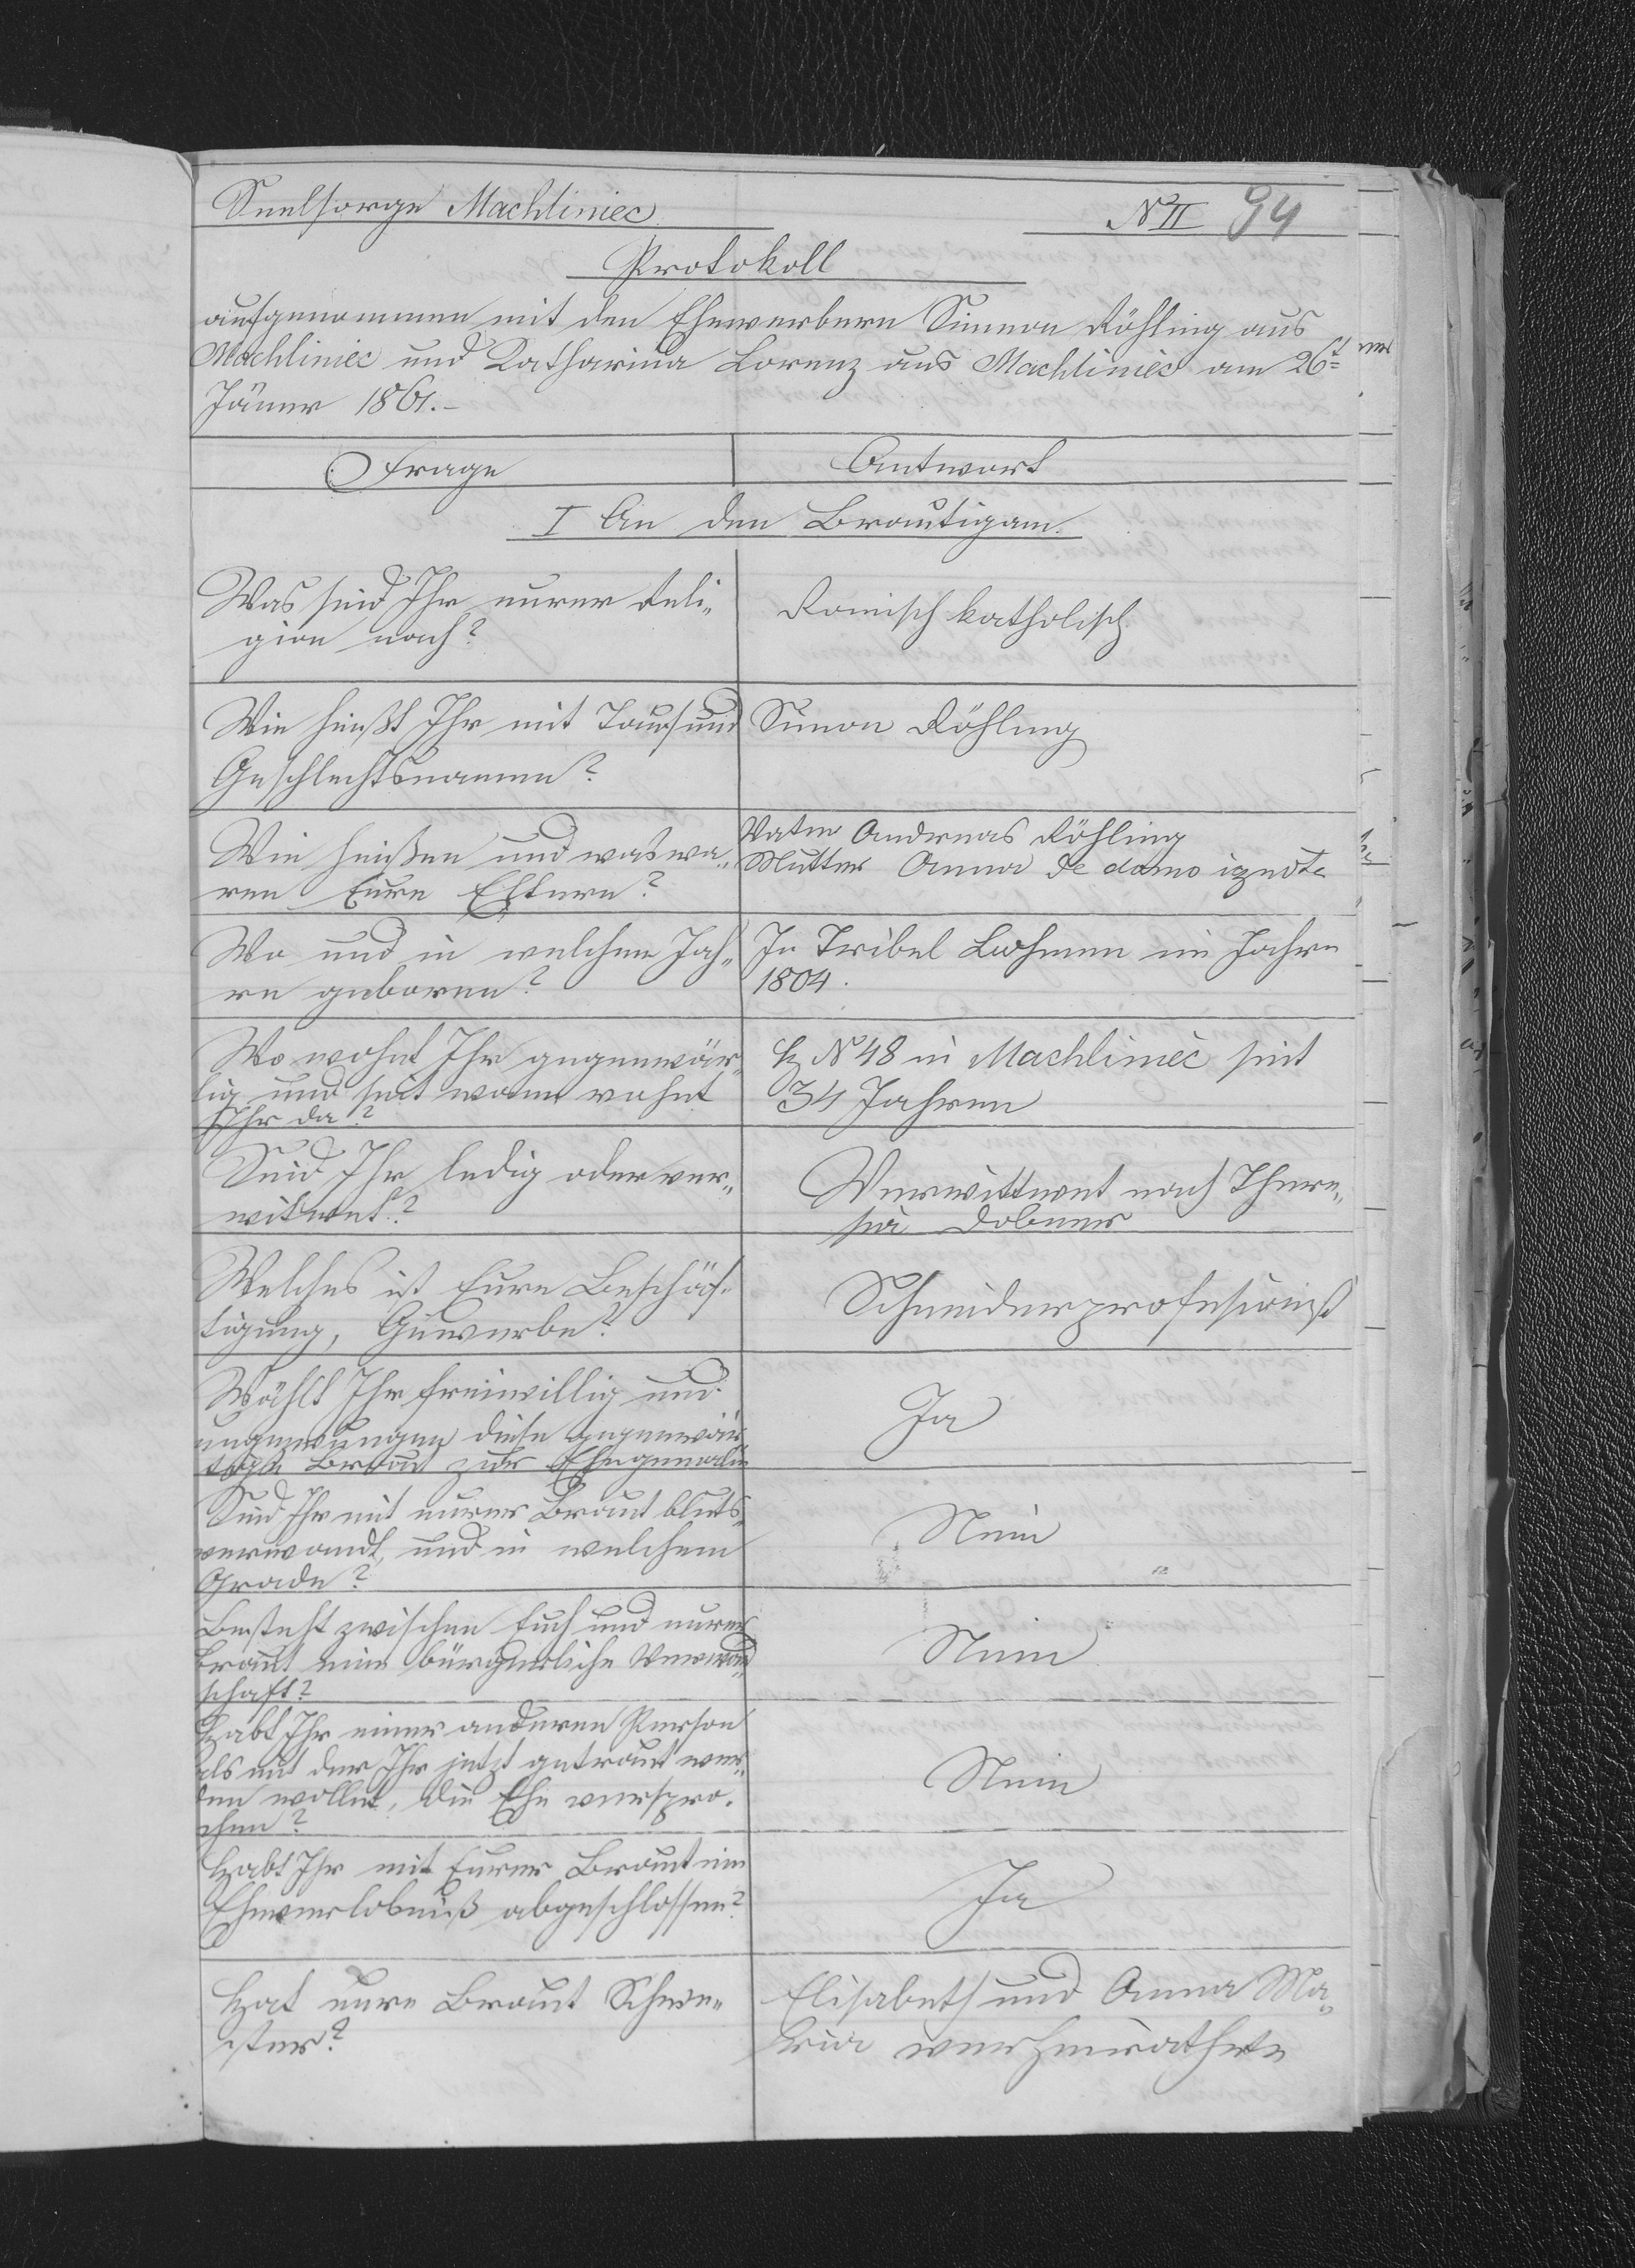 Seelsorge Machliniec
N II 94
Protokoll
aufgenommen mit den Ehewerbern Simon Röhling aus
Machliniec und Katharina Lorenz aus Machliniec am 26t
Jäner 1861.-
Frage
Antwort
I An den Brautigam.
Was seid Ihr eurer Reli-
gion nach?
Romisch katholisch
Wie heißt Ihr mit Tauf und
Geschlechtsnamen?
Simon Röhling
Wie heißen und was wa-
ren Eure Eltern?
Vater Andreas Röhling
Mutter Anna de domo ignota
Wo und in welchem Jah-
re geboren?
In Tribel Bohmen im Jahre
1804.
Wo wohnt Ihr gegenwär-
tig und seit wann wohnt
Ihr da?
h N 48 in Machliniec seit
34 Jahren
Seid Ihr ledig oder ver-
witwet?
Verwittwet nach There-
sia Dobner
Welches ist Eure Beschäf-
tigung, Gewerbe?
Schneiderprofesionist
Wählt Ihr freiwillig und
ungezwungen diese gegenwär-
tige Braut zur Ehegemalin
Ja
Seid Ihr mit eurer Braut bluts-
verwandt, und in welchem
Grade?
Nein
Besteht zwischen Euch und eurer
Braut eine bürgerliche Verwand-
schaft?
Nein
Habt Ihr einer anderen Person
als mit der Ihr jetzt getraut wer-
den wollet, die Ehe verspro-
chen?
Nein
Habt Ihr mit Eurer Braut ein
Eheverlobniß abgeschlossen?
Ja
Hat eure Braut Schwe-
ster?
Elisabeth und Anna Ma-
ria verheirathete